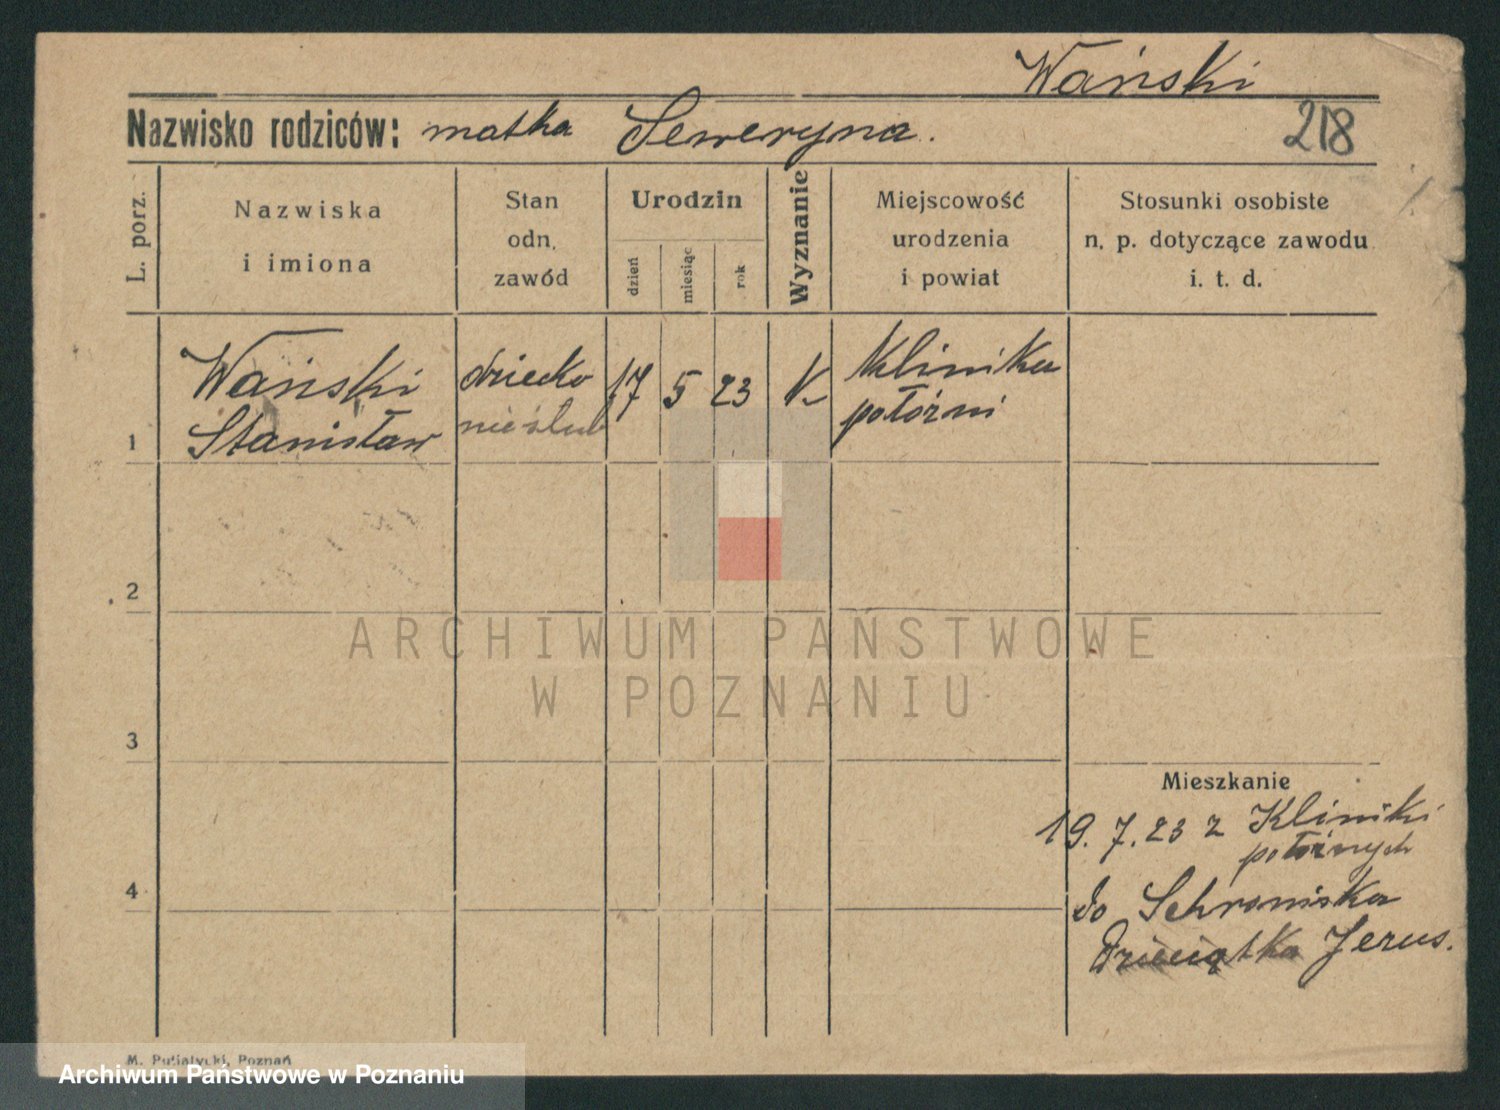 Wański
Nazwisko rodziców: matka Seweryna.
218
L. porz.
Nazwiska
i imiona
Stan
odn.
zawód
Urodzin
dzień
miesiąc
rok
Wyznanie
Miejscowość
urodzenia
i powiat
Stosunki osobiste
n. p. dotyczące zawodu
i. t. d.
1
Wański
Stanisław
dziecko
nieślub
17 5 23
Klinika
położni
2
ARCHIWUM PAŃSTWOWE
W POZNANIU
3
Mieszkanie
19. 7. 23 z Kliniki
położnych
4
do Schroniska
Dzieciątka Jezus.
M. Putiatycki, Poznań
Archiwum Państwowe w Poznaniu